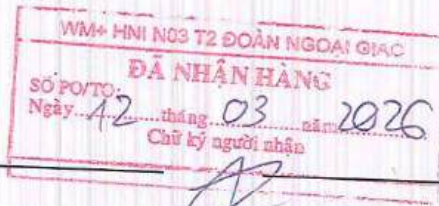 WM+ HNI N03 T2 ĐOÀN NGOẠI GIAO
ĐÃ NHẬN HÀNG
SỐ PO/TO:
Ngày 12 tháng 03 năm 2026
Chữ ký người nhận